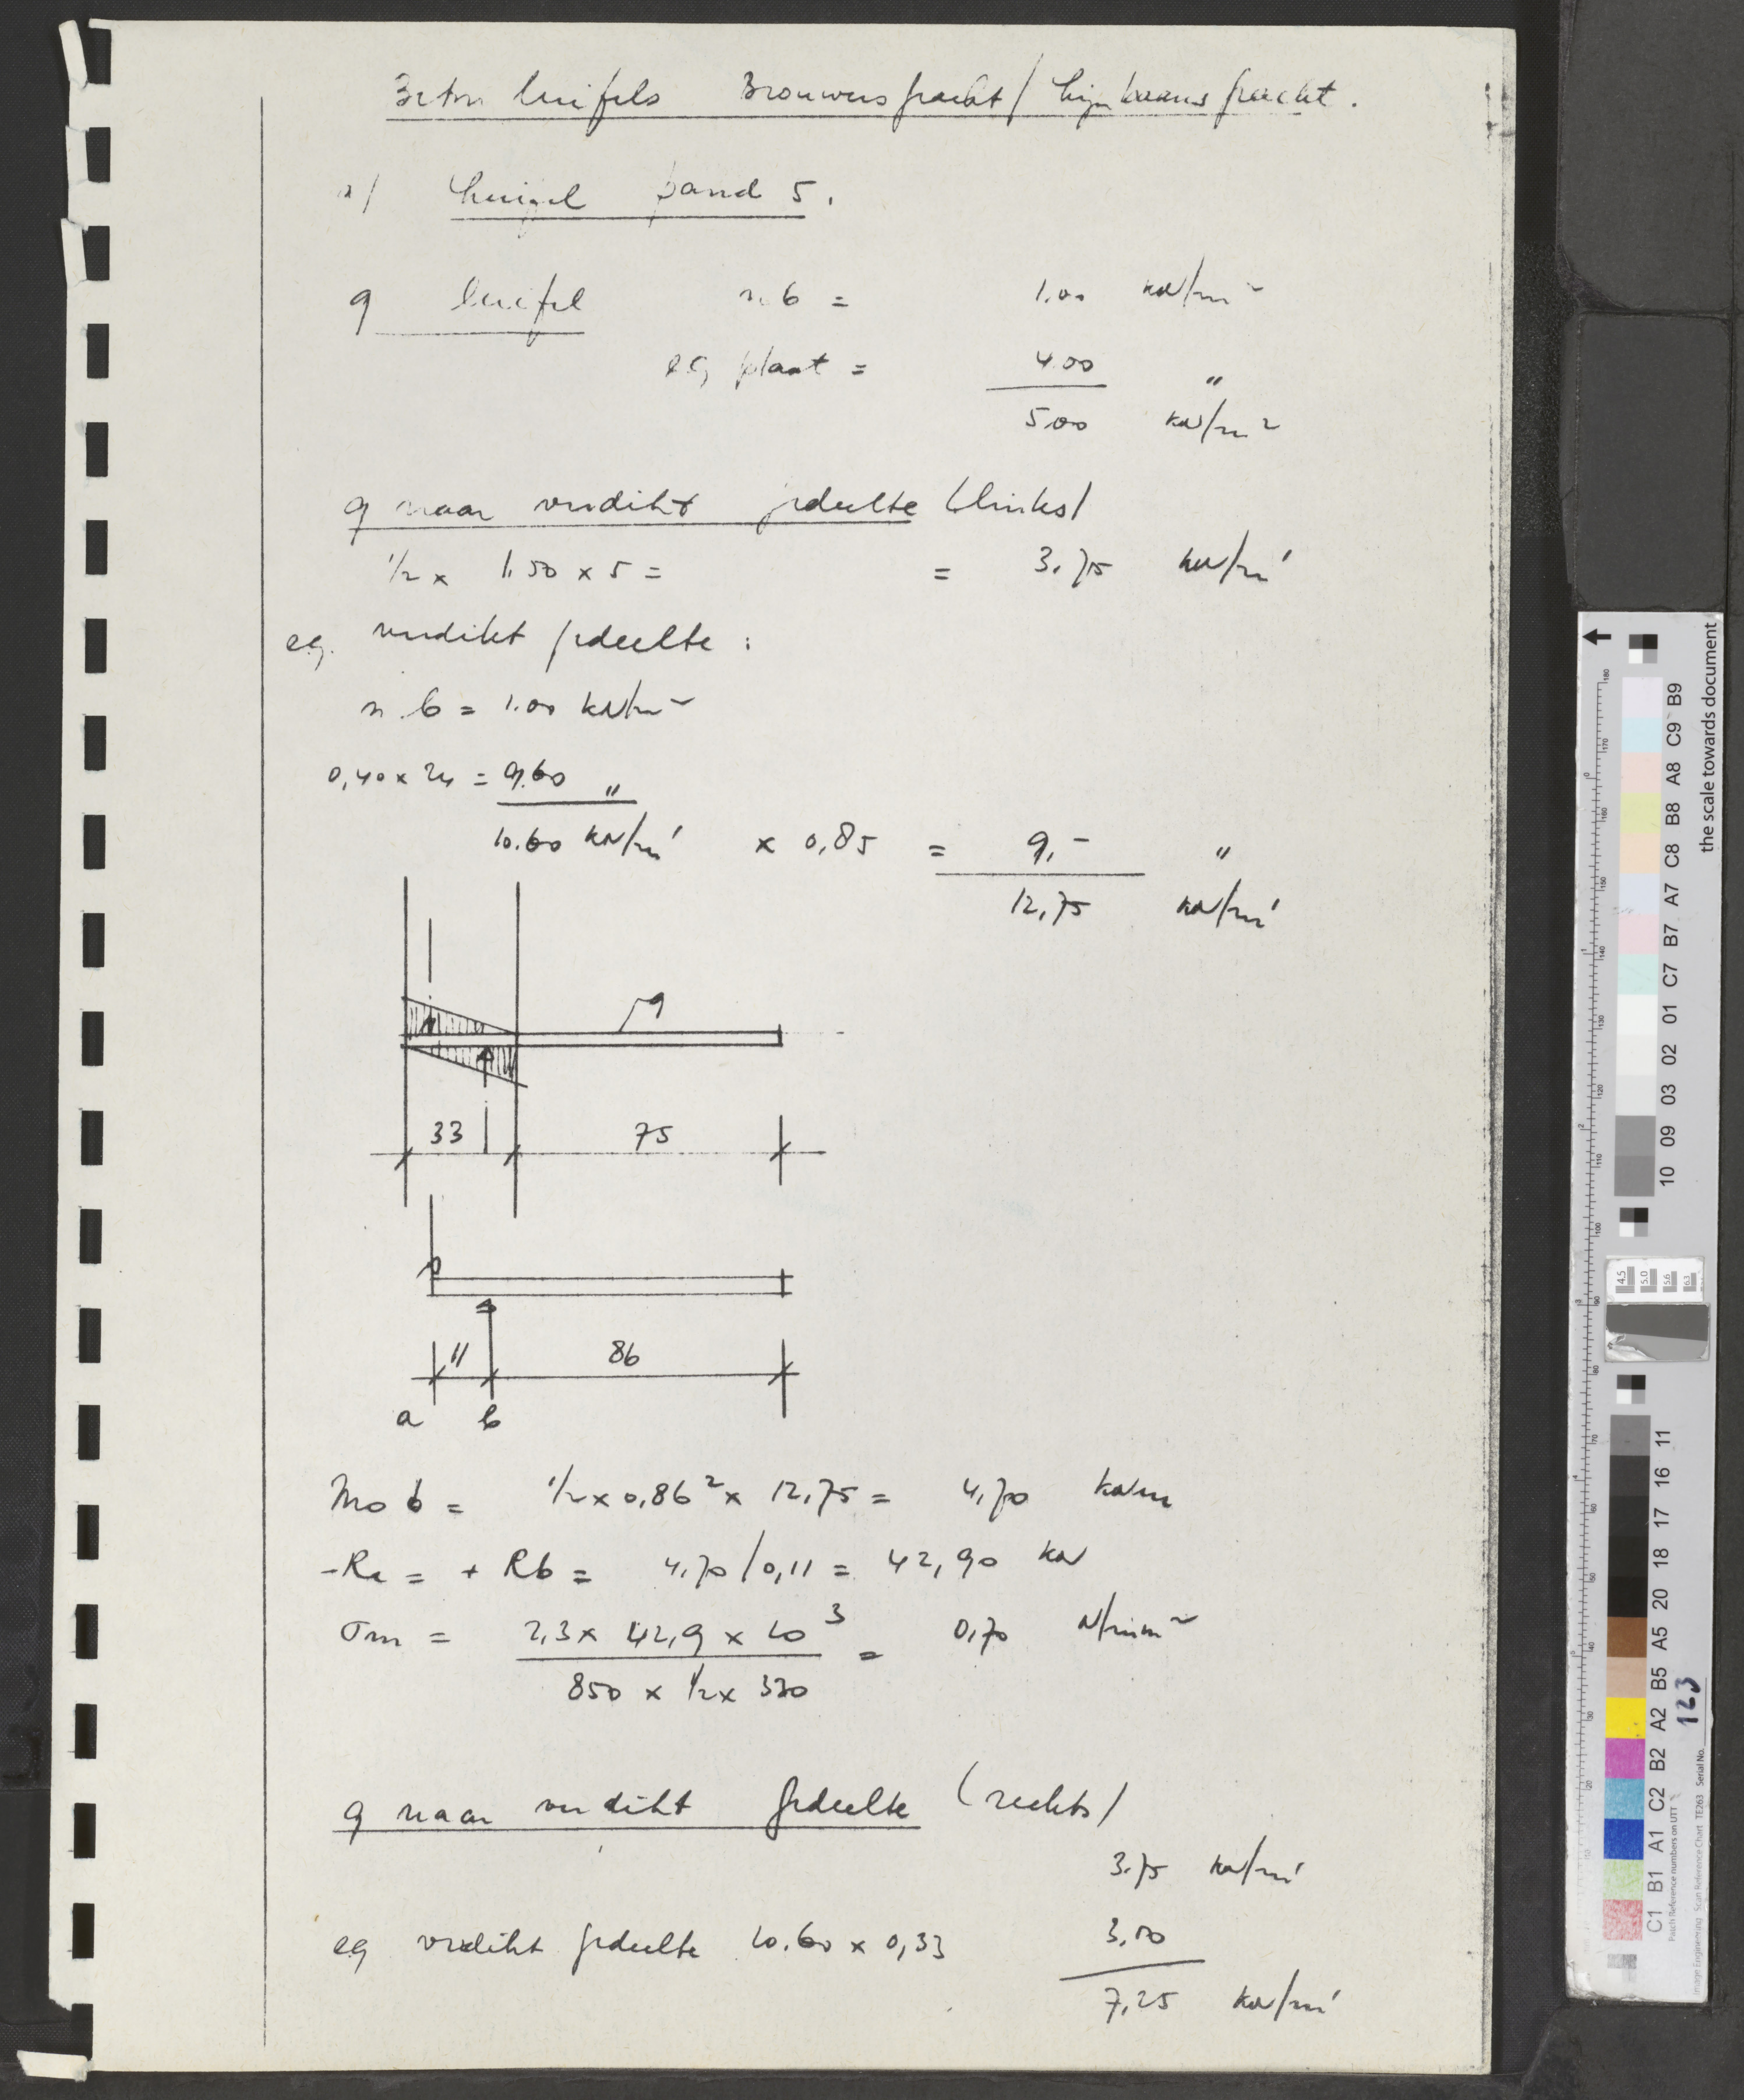 Beton luifels Brouwersgracht / Lijnbaansgracht.
a/ luifel pand 5.
q luifel n.b = 1.00 kN/m²
eg plaat = 4.00 "
5.00 kN/m²
q naar verdikt gedeelte (links)
1/2 x 1.50 x 5 = = 3.75 kN/m'
eg. verdikt gedeelte :
n.b = 1.00 kN/m²
0,40 x 24 = 9.60 "
10.60 kN/m' x 0,85 = 9,- "
12,75 kN/m'
q
33 75
11 86
a b
Mo b = 1/2 x 0,86² x 12,75 = 4,70 kNm
-Ra = + Rb = 4,70 / 0,11 = 42,90 kN
σm = 2,3 x 42,9 x 10³ = 0,70 N/mm²
850 x 1/2 x 330
q naar verdikt gedeelte (rechts)
3.75 kN/m'
eg verdikt gedeelte 10.60 x 0,33 3,50
7,25 kN/m'
the scale towards document
B9 C9 A8 B8 C8 A7 B7 C7 01 02 03 09 10
11 16 17 18 20 A5 B5 A2 B2 C2 A1 B1 C1
Image Engineering Scan Reference Chart TE263 Serial No. 123
Patch Reference numbers on UTT